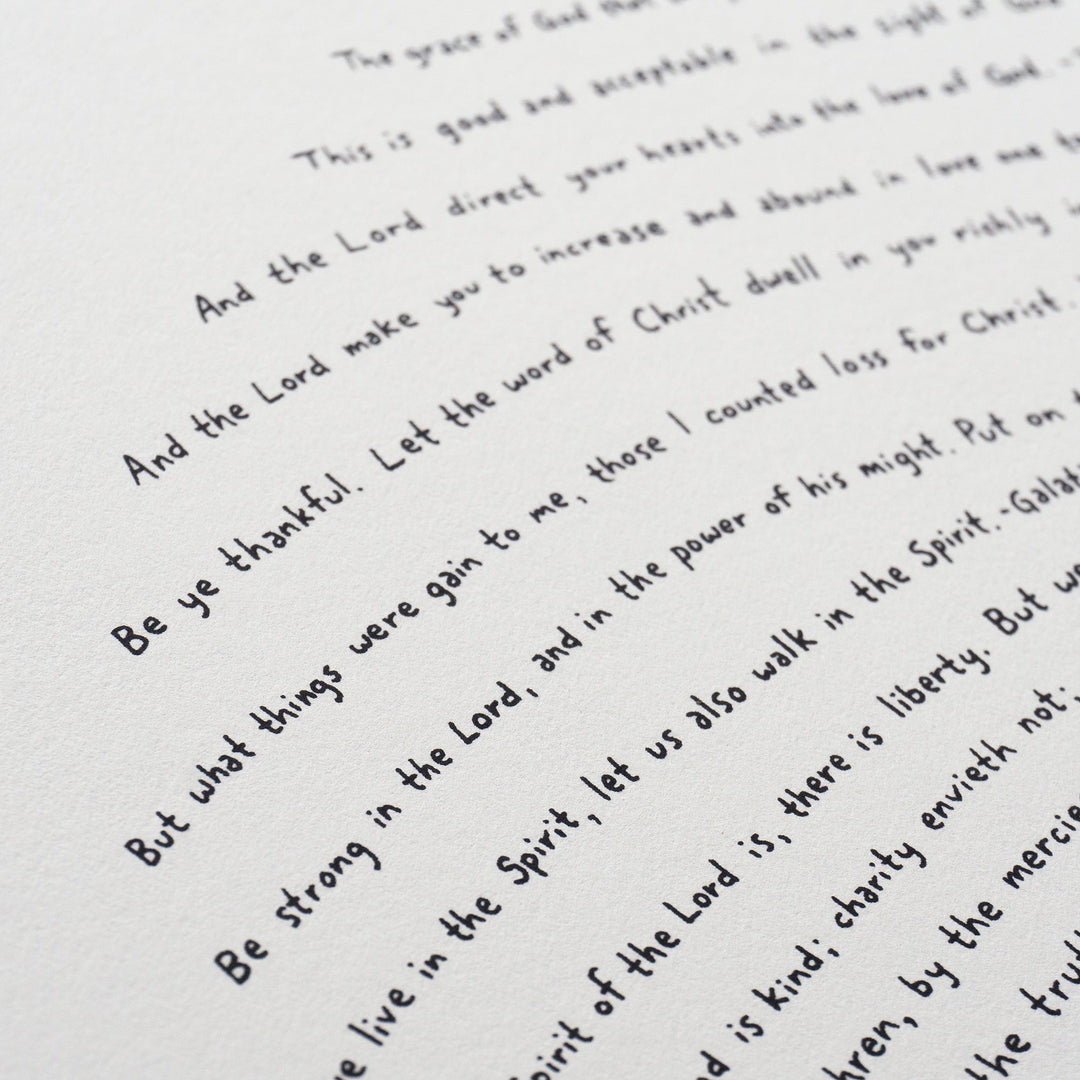 The grace of God that
This is good and acceptable in the sight of God
And the Lord direct your hearts into the love of God. -
And the Lord make you to increase and abound in love one
Be ye thankful. Let the word of Christ dwell in you richly
But what things were gain to me, those I counted loss for Christ.
Be strong in the Lord, and in the power of his might. Put on
live in the Spirit, let us also walk in the Spirit.-Galati
pirit of the Lord is, there is liberty. But we
d is kind; charity envieth not;
hren, by the mercie
the trut